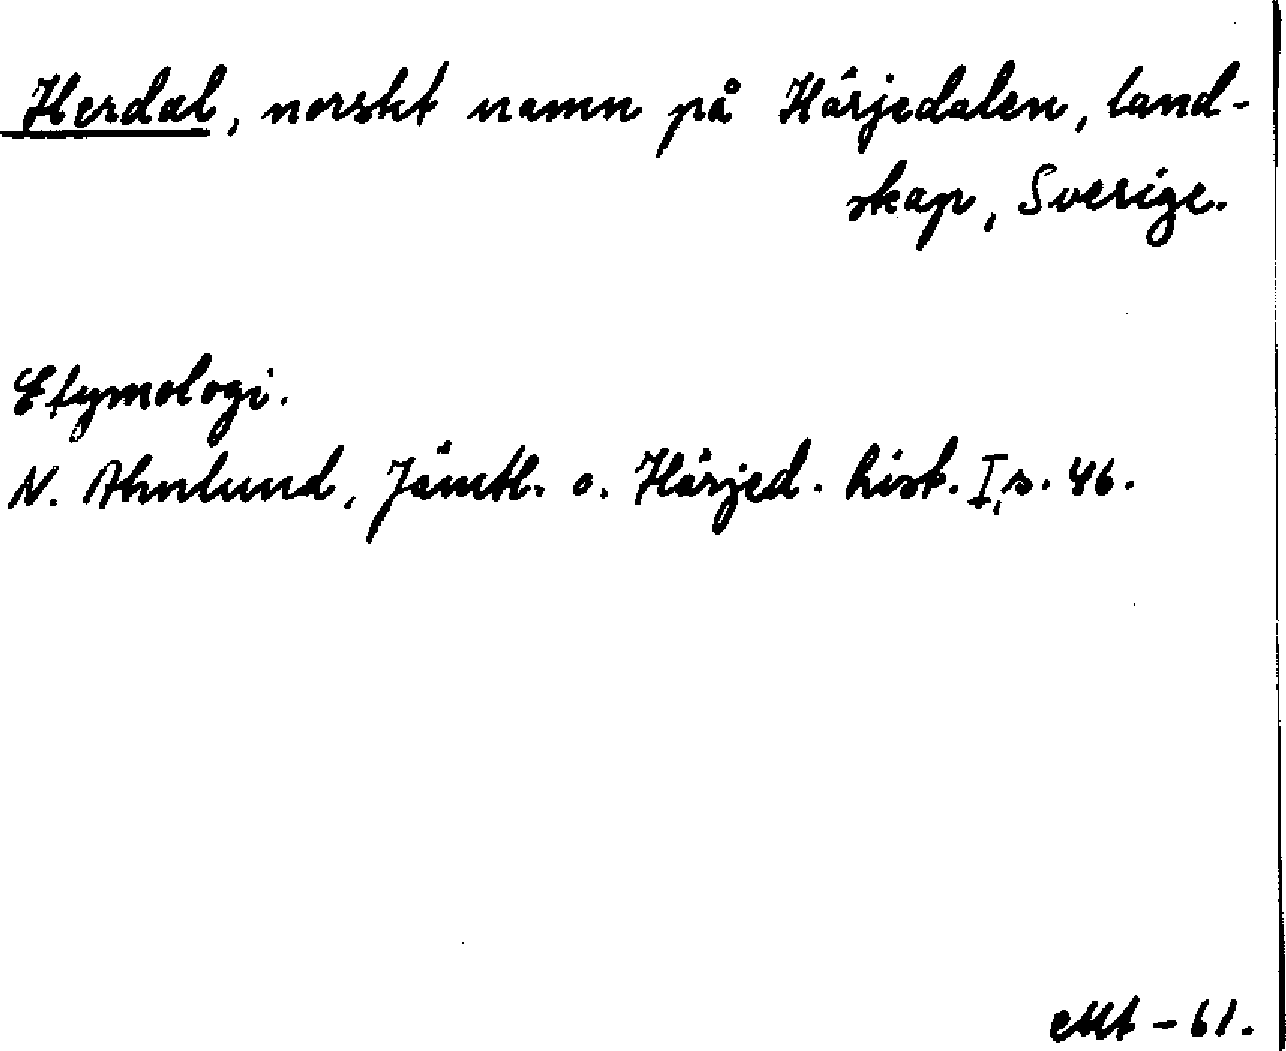 Herdal, norskt namn på Härjedalen, land-
skap, Sverige.
Etymologi.
N. Ahnlund, Jämtl. o. Härjed. hist. I, s. 46.
-61.